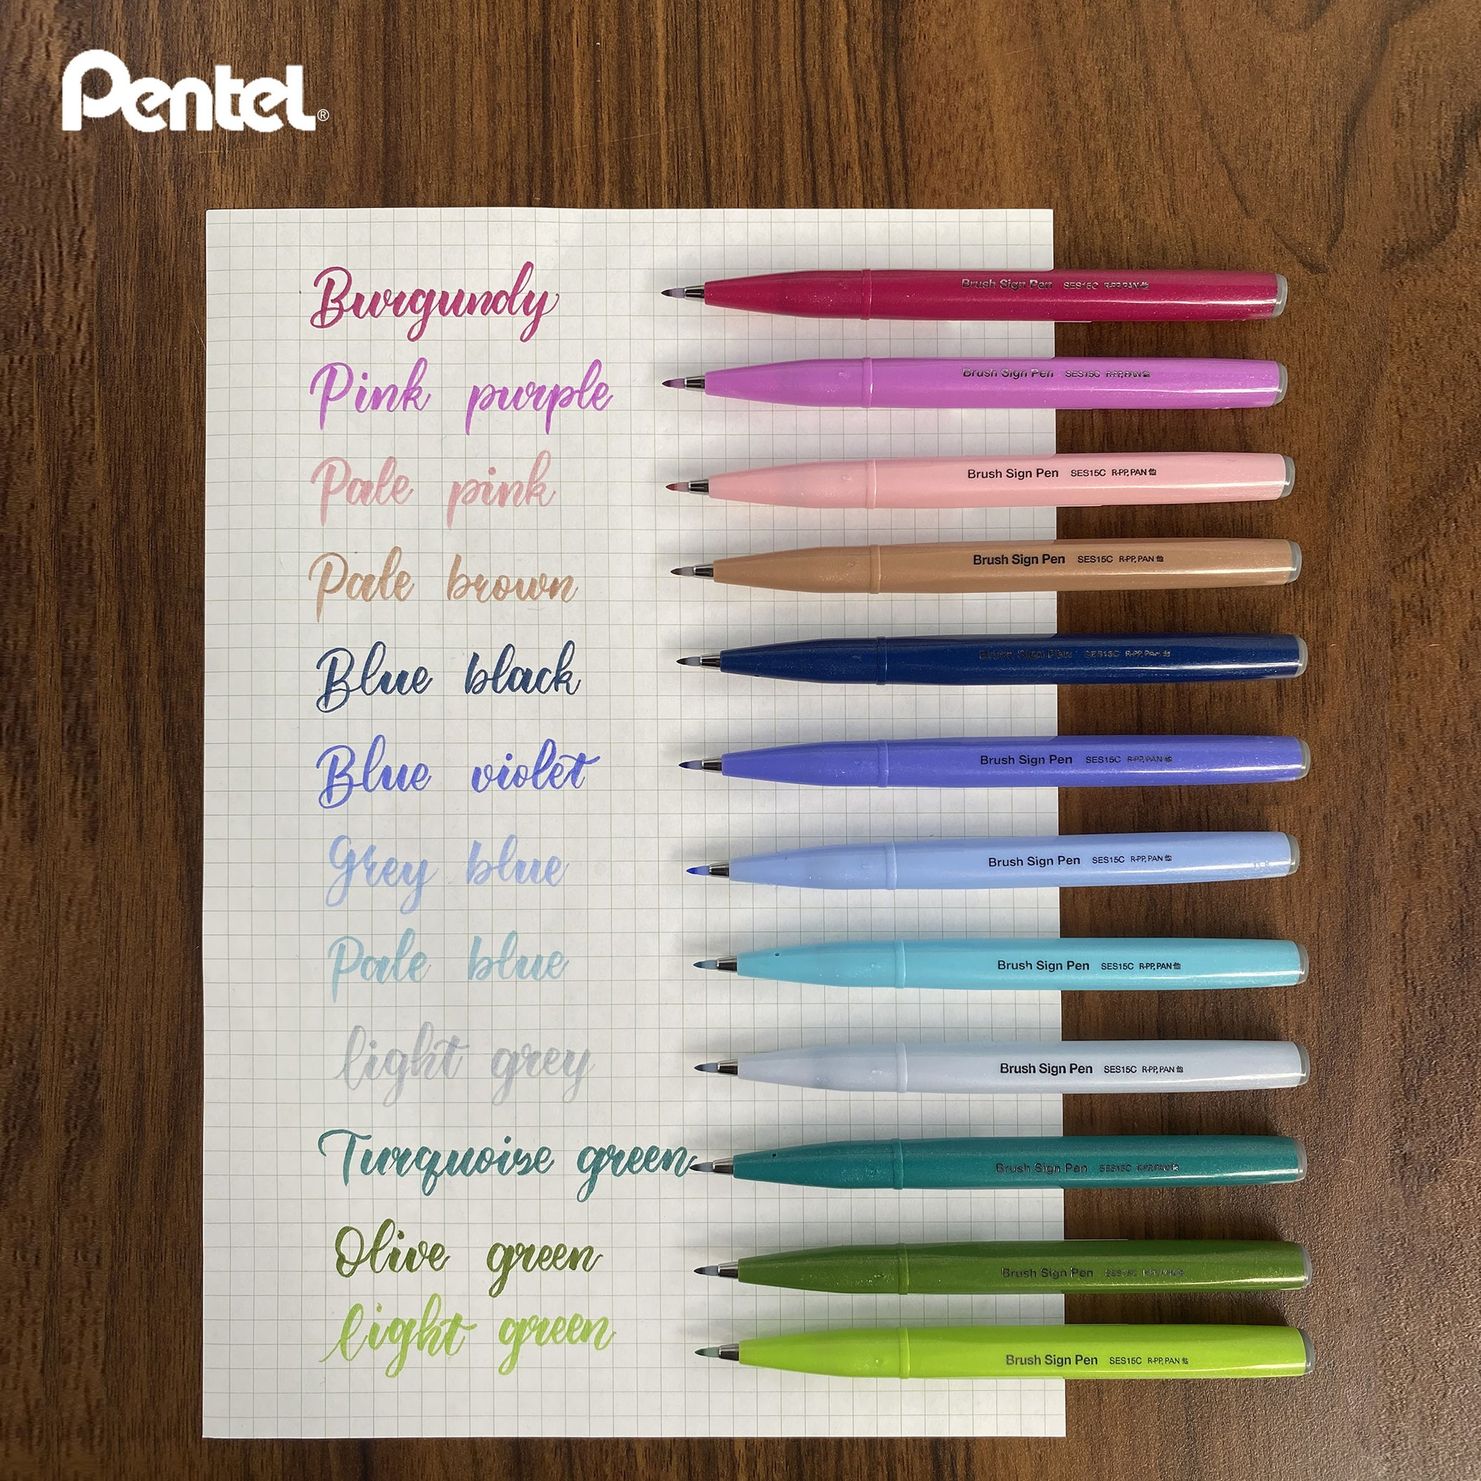 Pentel®
Burgundy
Brush Sign Pen SES15C R-PP, PAN 他
Pink purple
Brush Sign Pen SES15C R-PP, PAN 他
Pale pink
Brush Sign Pen SES15C R-PP, PAN 他
Pale brown
Brush Sign Pen SES15C R-PP, PAN 他
Blue black
Brush Sign Pen SES15C R-PP, PAN 他
Blue violet
Brush Sign Pen SES15C R-PP, PAN 他
Grey blue
Brush Sign Pen SES15C R-PP, PAN 他
Pale blue
Brush Sign Pen SES15C R-PP, PAN 他
light grey
Brush Sign Pen SES15C R-PP, PAN 他
Turquoise green
Brush Sign Pen SES15C R-PP, PAN 他
Olive green
Brush Sign Pen
light green
Brush Sign Pen SES15C R-PP, PAN 他